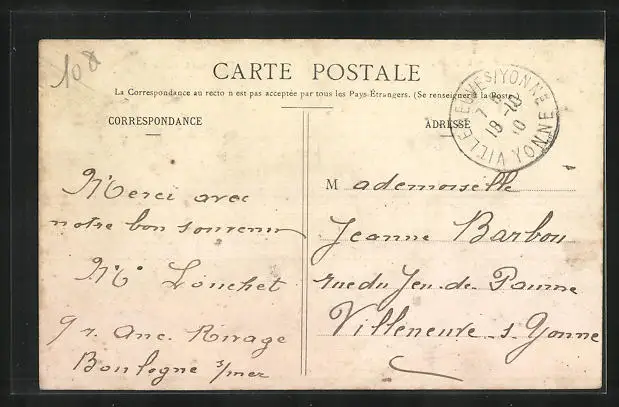 10 a
CARTE POSTALE
La Correspondance au recto n est pas acceptée par tous les Pays Étrangers. (Se renseigner à la Poste)
CORRESPONDANCE
ADRESSE
VILLENEUVE S/YONNE
18 -10
10
YONNE
Merci avec
notre bon souvenir
M. Louchet
9 r. Anc. Rivage
Boulogne s/mer
M ademoiselle
Jeanne Barbou
rue du Jeu de Paume
Villeneuve s. Yonne